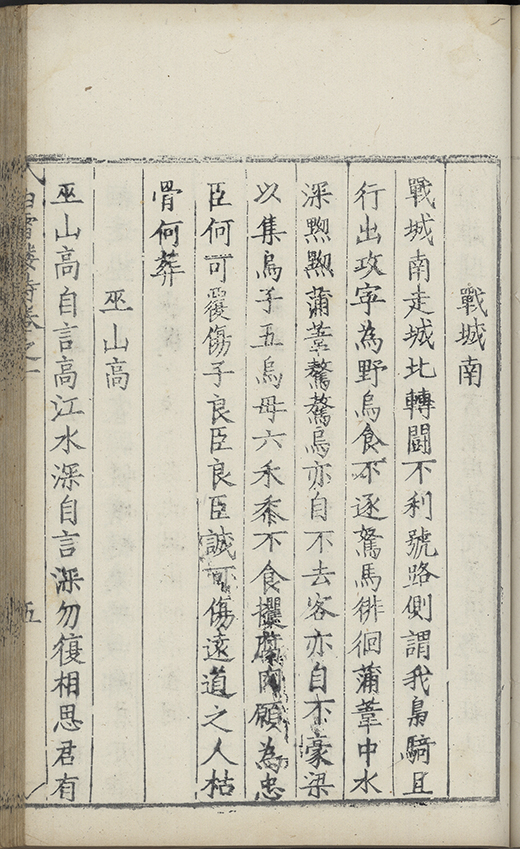 戰城南
戰城南走城北轉鬬不利號路側謂我梟騎且
行出攻寧為野烏食不逐駑馬徘徊蒲葦中水
深黝黝蒲葦驁驁烏亦自不去客亦自不豪梁
以集烏子五烏母六禾黍不食攫腐肉願為忠
臣何可覆傷子良臣良臣誠可傷遠道之人枯
骨何葬
巫山高
巫山高自言高江水深自言深勿復相思君有
白雪樓詩卷之一 五